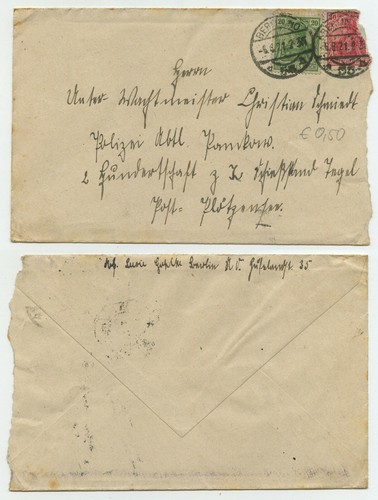 Herrn
Unter-Wachtmeister Christian Schmiedt
Polizei Abtl. Pankow.
€ 0,50
2 Hundertschaft z. Schießstand Tegel
Post-Plötzensee.
BERLIN NO
-5.8.21. 2-3N
Abs. Lucie Berlin N.O. 35